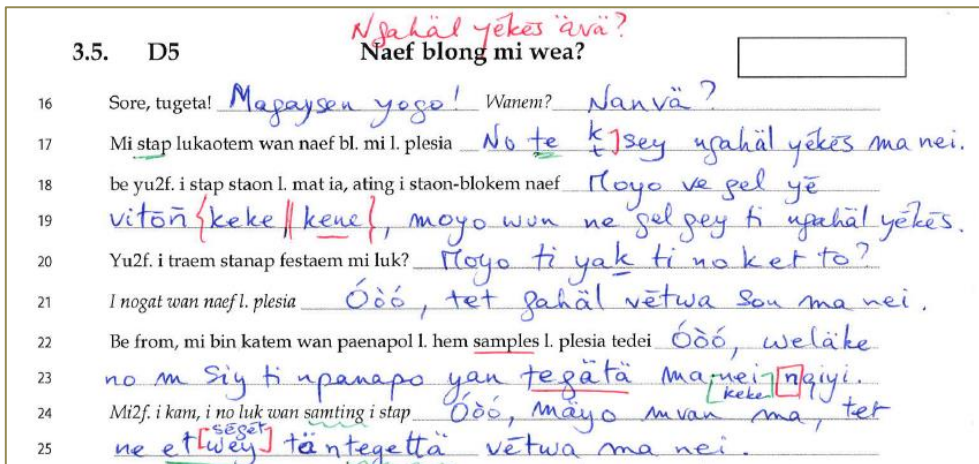 Ngahäl yēkēs ävä?
3.5. D5 Naef blong mi wea?
16 Sore, tugeta! Magaysen yogo! Wanem? Nanvä?
17 Mi stap lukaotem wan naef bl. mi l. plesia No te k t ] sey ngahäl yēkēs ma nei.
18 be yu2f. i stap staon l. mat ia, ating i staon-blokem naef Moyo ve gel yē
19 vitōn̄ {keke, kene}, moyo wun ne gel gey ti ngahäl yēkēs.
20 Yu2f. i traem stanap festaem mi luk? Moyo ti yak ti no ket to?
21 I nogat wan naef l. plesia Óòó, tet gahäl vētwa sou ma nei.
22 Be from, mi bin katem wan paenapol l. hem samples l. plesia tedei Óòó, weläke
23 no m siy ti npanapo yan tegätä ma nei [keke] nqiyi.
24 Mi2f. i kam, i no luk wan samting i stap Óòó, mäyo mvan ma, tet
25 ne et [wēy] sēgēt täntegettä vētwa ma nei.